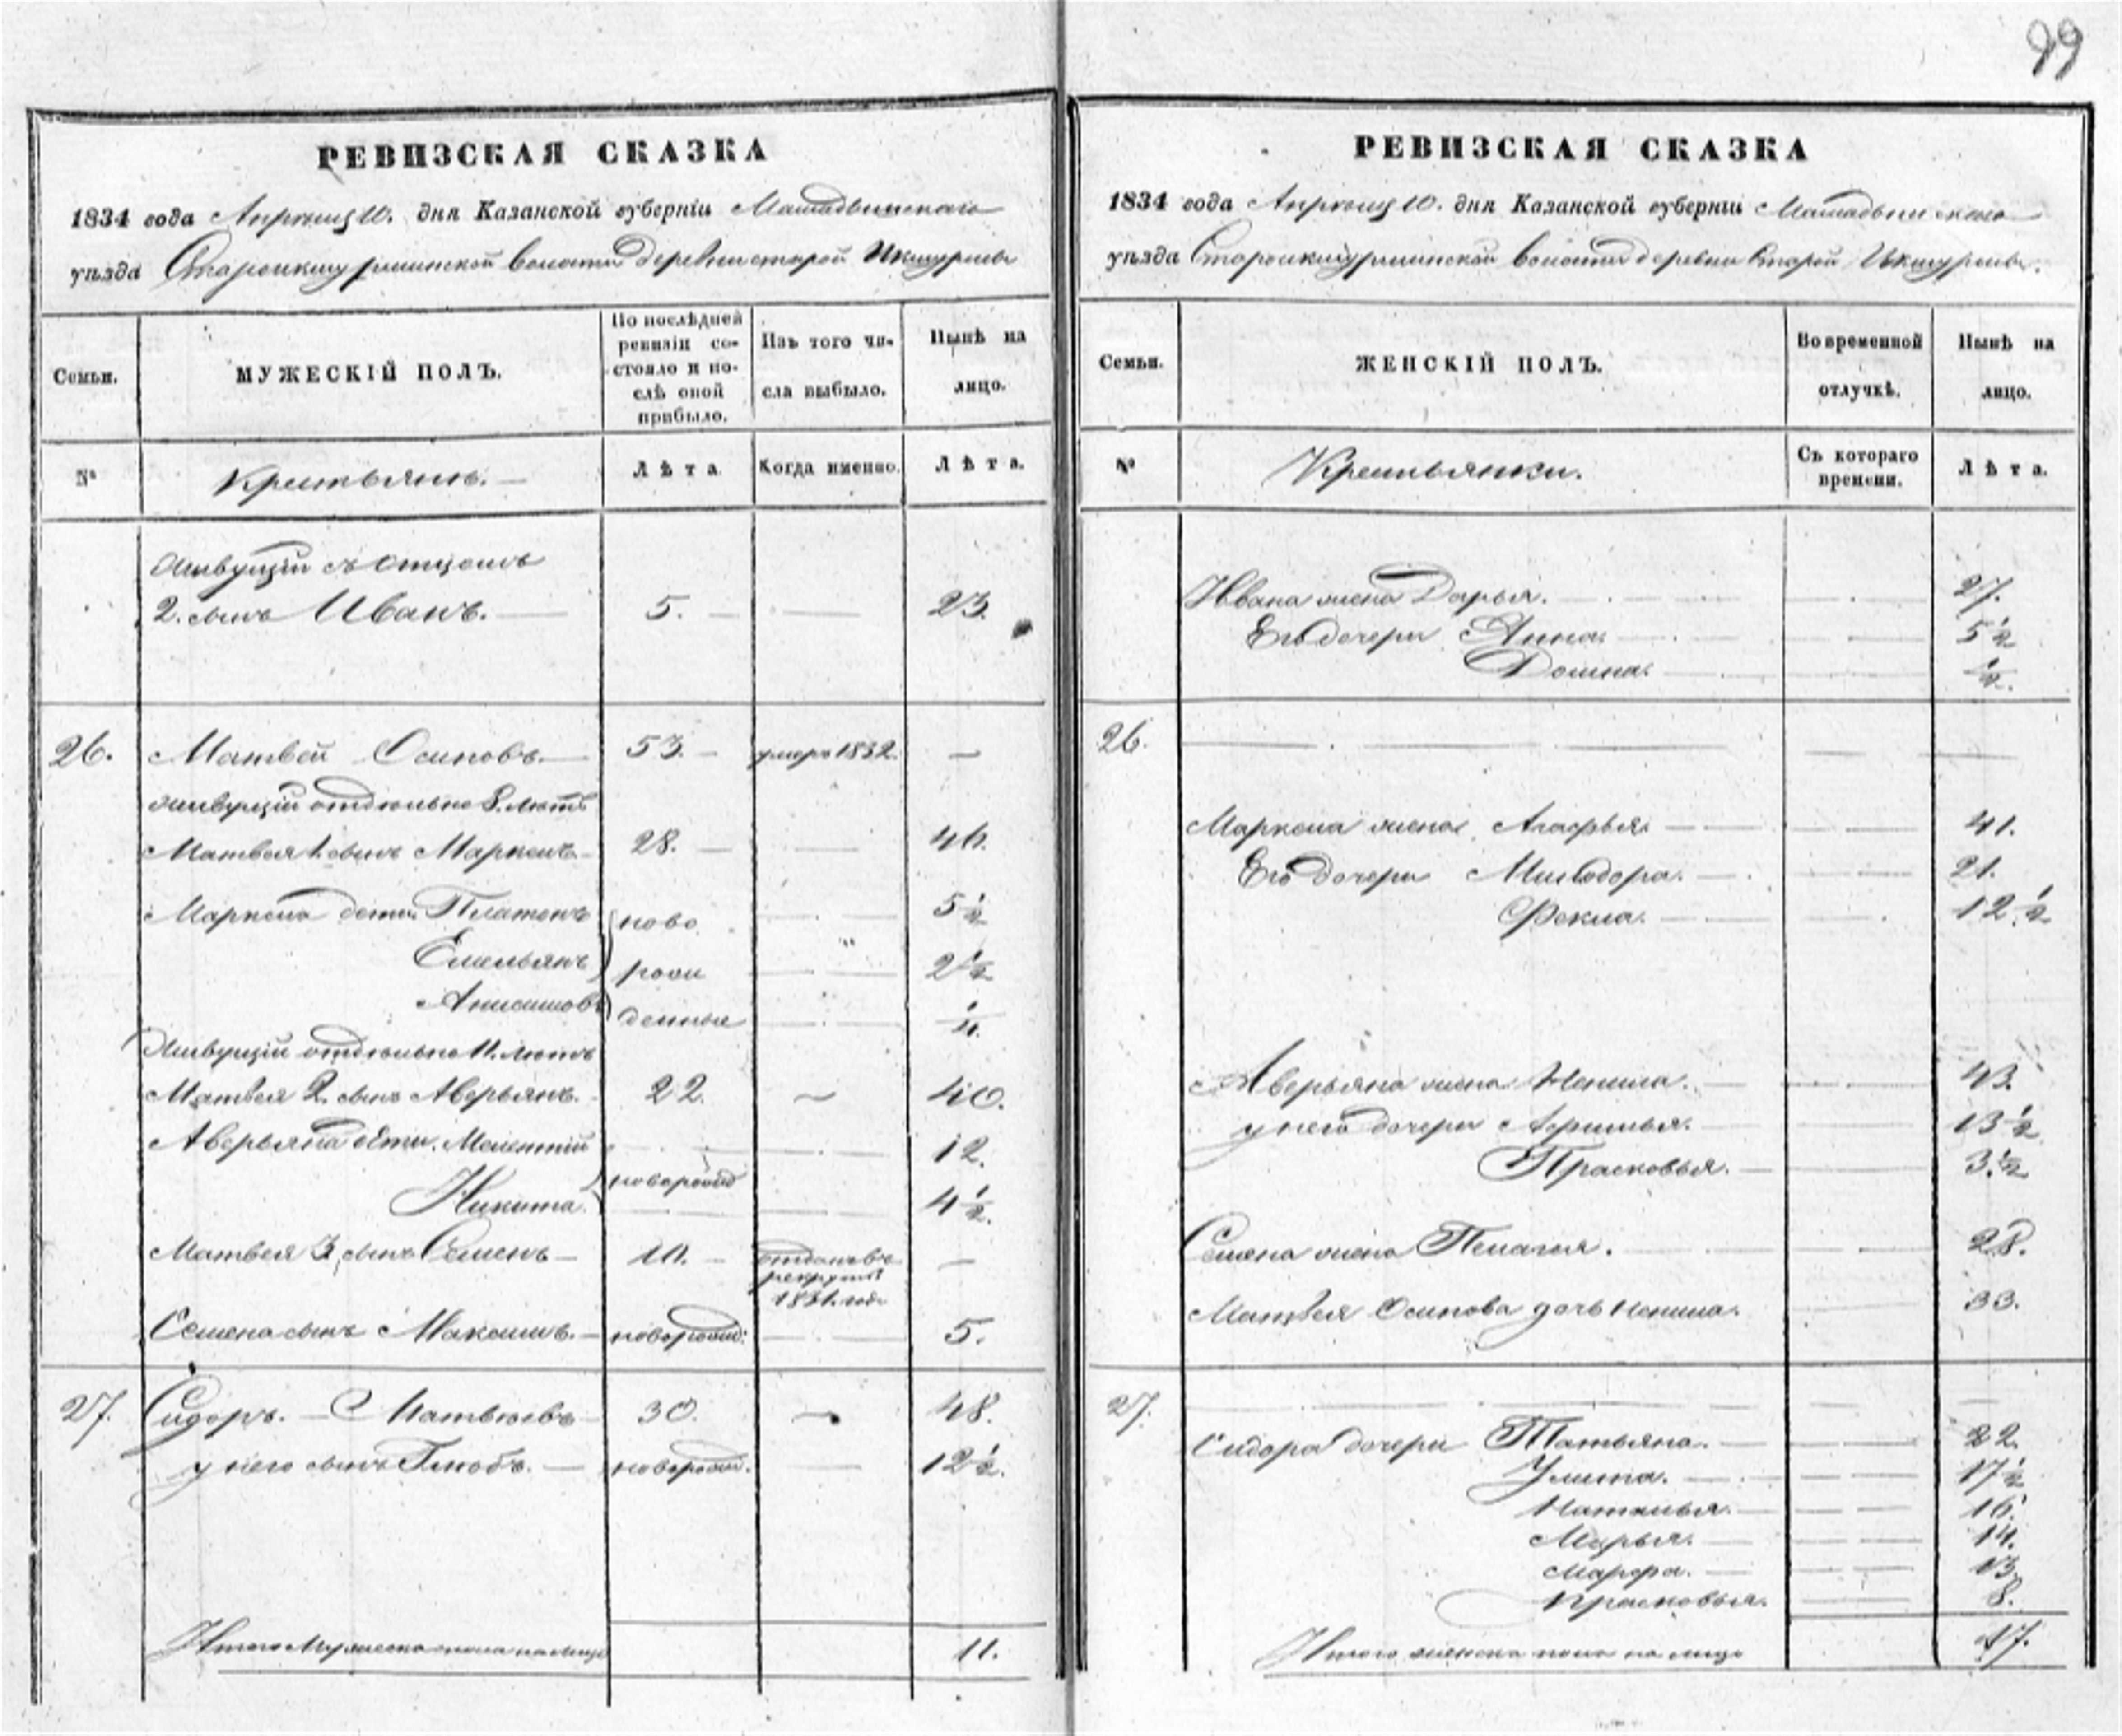 99
РЕВИЗСКАЯ СКАЗКА
1834 года Апрѣля 10. дня Казанской губерніи Мамадышскаго
уѣзда Староикшурминской волости деревни старой Икшурмы
Семьи.
МУЖЕСКІЙ ПОЛЪ.
По послѣдней ревизіи состояло и послѣ оной прибыло.
Изъ того числа выбыло.
Нынѣ на лицо.
№
Крестьянъ.
Лѣта.
Когда именно.
Лѣта.
Живущій съ отцомъ
2. сынъ Иванъ. 5. 23.
26. Матвей Осиповъ. 53. умеръ 1832.
живущій отдѣльно 8. лѣтъ
Матвея 1. сынъ Маркелъ 28. 46.
Маркела дети Платонъ ново 5 1/2
Емельянъ рож 2 1/2
Анисимовъ денные
Живущій отдѣльно 11. лѣтъ
Матвея 2. сынъ Аверьянъ. 22. 40.
Аверьяна дети. Мелентій 12.
новорожд
Никита. 4 1/2.
Матвея 3. сынъ Семенъ отданъ въ
рекруты
1831. годе
Семена сынъ Максимъ. новорожд: 5.
27. Сидоръ. Матвѣевъ 30. 48.
у него сынъ Глебъ. новорожд. 12 1/2.
Итого Мужеска пола на лицо 11.
РЕВИЗСКАЯ СКАЗКА
1834 года Апрѣля 10. дня Казанской губерніи Мамадышскаго
уѣзда Староикшурминской волости деревни Старой Икшурмы.
Семьи.
ЖЕНСКІЙ ПОЛЪ.
Во временной отлучкѣ.
Нынѣ на лицо.
№
Крестьянки.
Съ котораго времени.
Лѣта.
Ивана жена Дарья. 27.
Его дочери Анна. 5 1/2
Домна. 1/2.
26.
Маркела жена Агафья 41.
Его дочери Миводора. 21.
Фекла. 12 1/2
Аверьяна жена Ненила. 43.
у него дочери 13 1/2
Прасковья. 3 1/2
Семена жена Пелагея. 28.
Матвея Осипова дочь Ненила. 33.
27.
Сидора дочери Татьяна. 22.
Улита. 17 1/2
Наталья. 16.
Марья. 14.
Марфа. 13.
Прасковья. 8.
Итого женска пола на лицо 17.